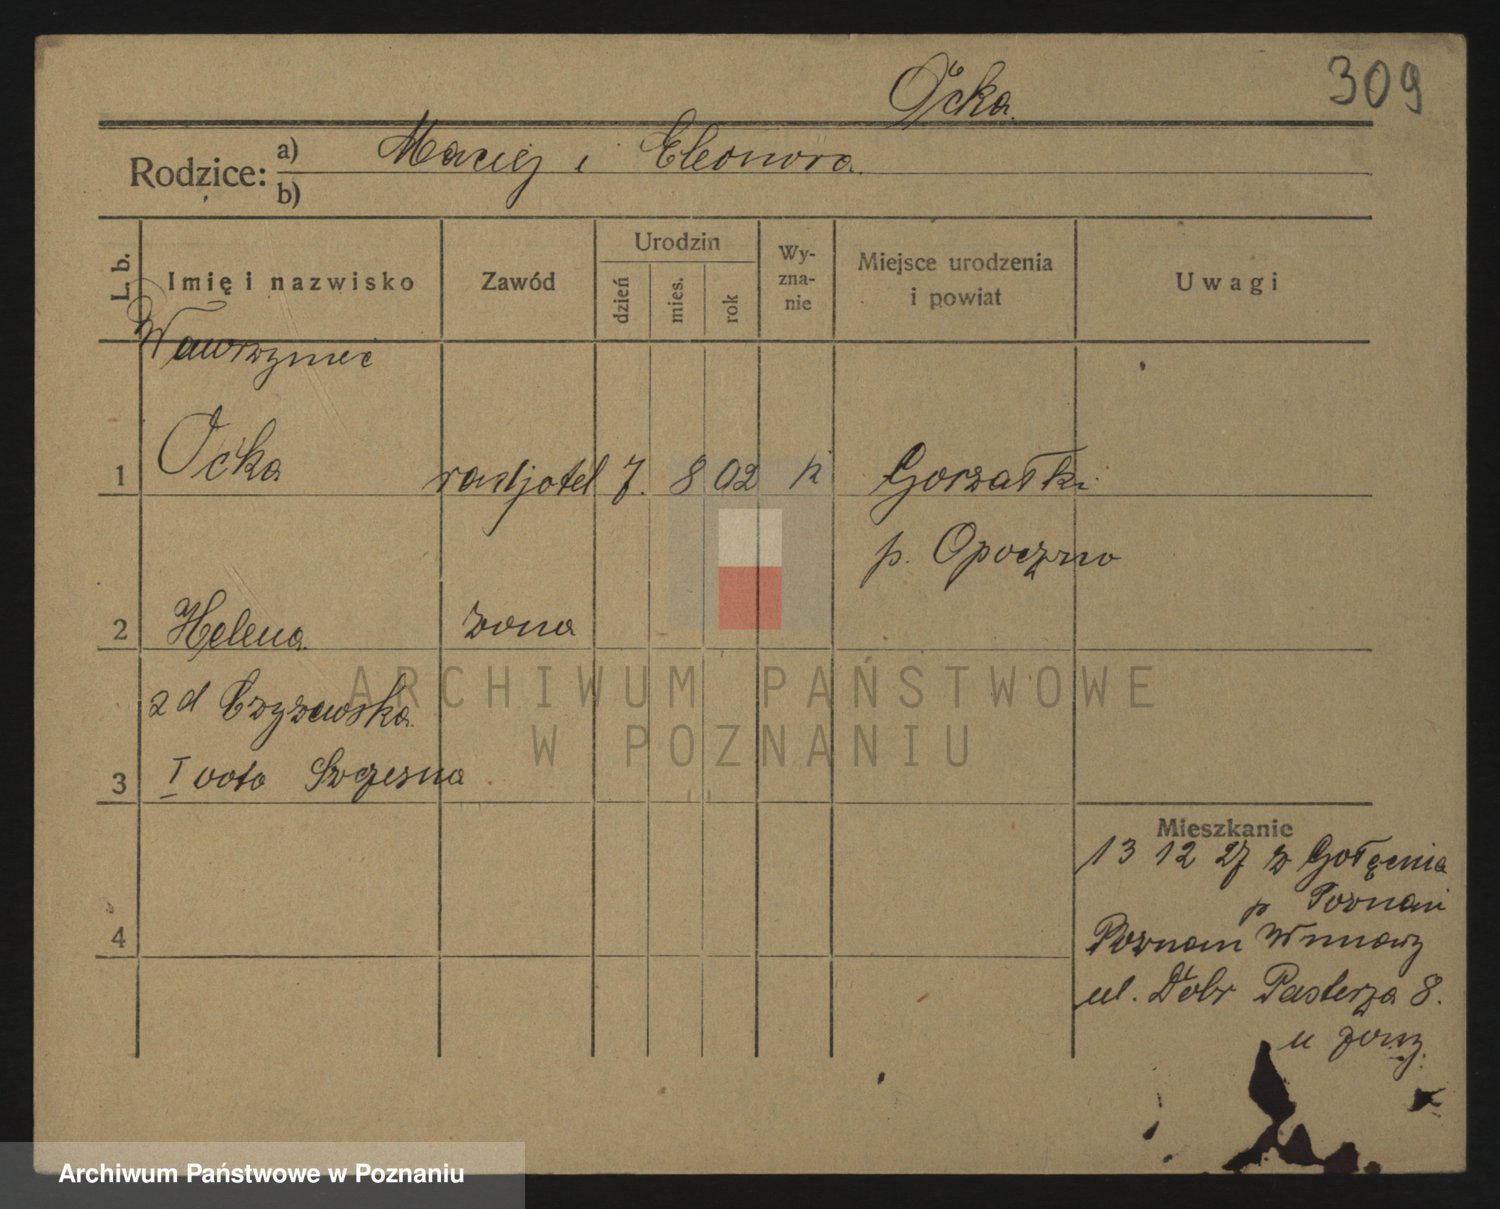 Ocka.
309
Rodzice: a) Maciej i Eleonora.
b)
L. b. Imię i nazwisko Zawód Urodzin dzień mies. rok Wy-zna-nie Miejsce urodzenia i powiat Uwagi
Wawrzyniec
1 Ocka radjotel 7. 8 02 k Gorzałki
p. Opoczno
2 Helena żona
z d Czyżewska
3 I voto Szczesna
ARCHIWUM PAŃSTWOWE
W POZNANIU
Mieszkanie
13 12 27 z Gołęcina
p Poznań
4 Poznań Winiary
ul. Dobr Pasterza 8.
u żony.
Archiwum Państwowe w Poznaniu